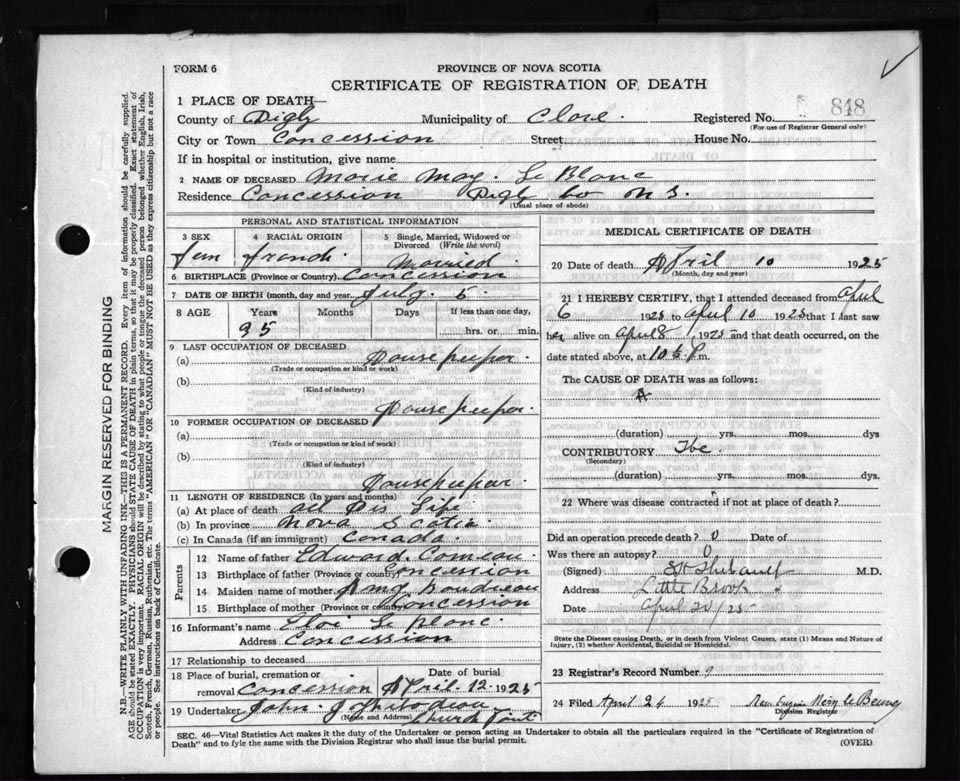 FORM 6
PROVINCE OF NOVA SCOTIA
CERTIFICATE OF REGISTRATION OF DEATH
1 PLACE OF DEATH—
848
County of Digby Municipality of Clare. Registered No.
(For use of Registrar General only)
City or Town Concession Street House No.
If in hospital or institution, give name
2 NAME OF DECEASED Marie May. Le Blanc
Residence Concession Digby Co N S.
(Usual place of abode)
PERSONAL AND STATISTICAL INFORMATION
3 SEX 4 RACIAL ORIGIN 5 Single, Married, Widowed or Divorced (Write the word)
Fem french Married
6 BIRTHPLACE (Province or Country) Concession
7 DATE OF BIRTH (month, day and year) July. 5.
8 AGE Years Months Days If less than one day,
95 hrs. or min.
9 LAST OCCUPATION OF DECEASED
(a) House keeper.
(Trade or occupation or kind or work)
(b)
(Kind of industry)
House keeper.
10 FORMER OCCUPATION OF DECEASED
(a)
(Trade or occupation or kind of work)
(b)
(Kind of industry)
House keeper.
11 LENGTH OF RESIDENCE (In years and months)
(a) At place of death all His Life
(b) In province Nova Scotia.
(c) In Canada (if an immigrant) Canada.
Parents
12 Name of father Edward. Comeau.
13 Birthplace of father (Province or country) Concession
14 Maiden name of mother Amy
15 Birthplace of mother (Province or country) Concession
16 Informant's name Eloi Le Blanc.
Address Concession
17 Relationship to deceased
18 Place of burial, cremation or removal Concession Date of burial April. 12. 1925
19 Undertaker John.
(Name and Address) Church Point
MEDICAL CERTIFICATE OF DEATH
20 Date of death April 10 1925
(Month, day and year)
21 I HEREBY CERTIFY, that I attended deceased from April
6 1925 to April 10 1925 that I last saw
her alive on April 8 1925 and that death occurred, on the
date stated above, at 10 P m.
The CAUSE OF DEATH was as follows:
(duration) yrs. mos. dys
CONTRIBUTORY Tbc.
(Secondary)
(duration) yrs. mos. dys.
22 Where was disease contracted if not at place of death?
Did an operation precede death? 0 Date of
Was there an autopsy? 0
(Signed) Thibault M.D.
Address Little Brook
Date April 20/25
State the Disease causing Death, or in death from Violent Causes, state (1) Means and Nature of
Injury, (2) whether Accidental, Suicidal or Homicidal.
23 Registrar's Record Number 9
24 Filed April 24 1925
Division Registrar
SEC. 46—Vital Statistics Act makes it the duty of the Undertaker or person acting as Undertaker to obtain all the particulars required in the "Certificate of Registration of
Death" and to fyle the same with the Division Registrar who shall issue the burial permit. (OVER)
MARGIN RESERVED FOR BINDING
N.B.—WRITE PLAINLY WITH UNFADING INK—THIS IS A PERMANENT RECORD. Every item of information should be carefully supplied.
AGE should be stated EXACTLY. PHYSICIANS should STATE CAUSE OF DEATH in plain terms, so that it may be properly classified. Exact statement of
OCCUPATION is very important. RACIAL ORIGIN will be described by stating to what people or tongue the deceased person belonged whether English, Irish,
Scotch, French, German, Russian, Ruthenian, etc. The terms "AMERICAN" OR "CANADIAN" MUST NOT BE USED as they express citizenship but not a race
or people. See instructions on back of Certificate.